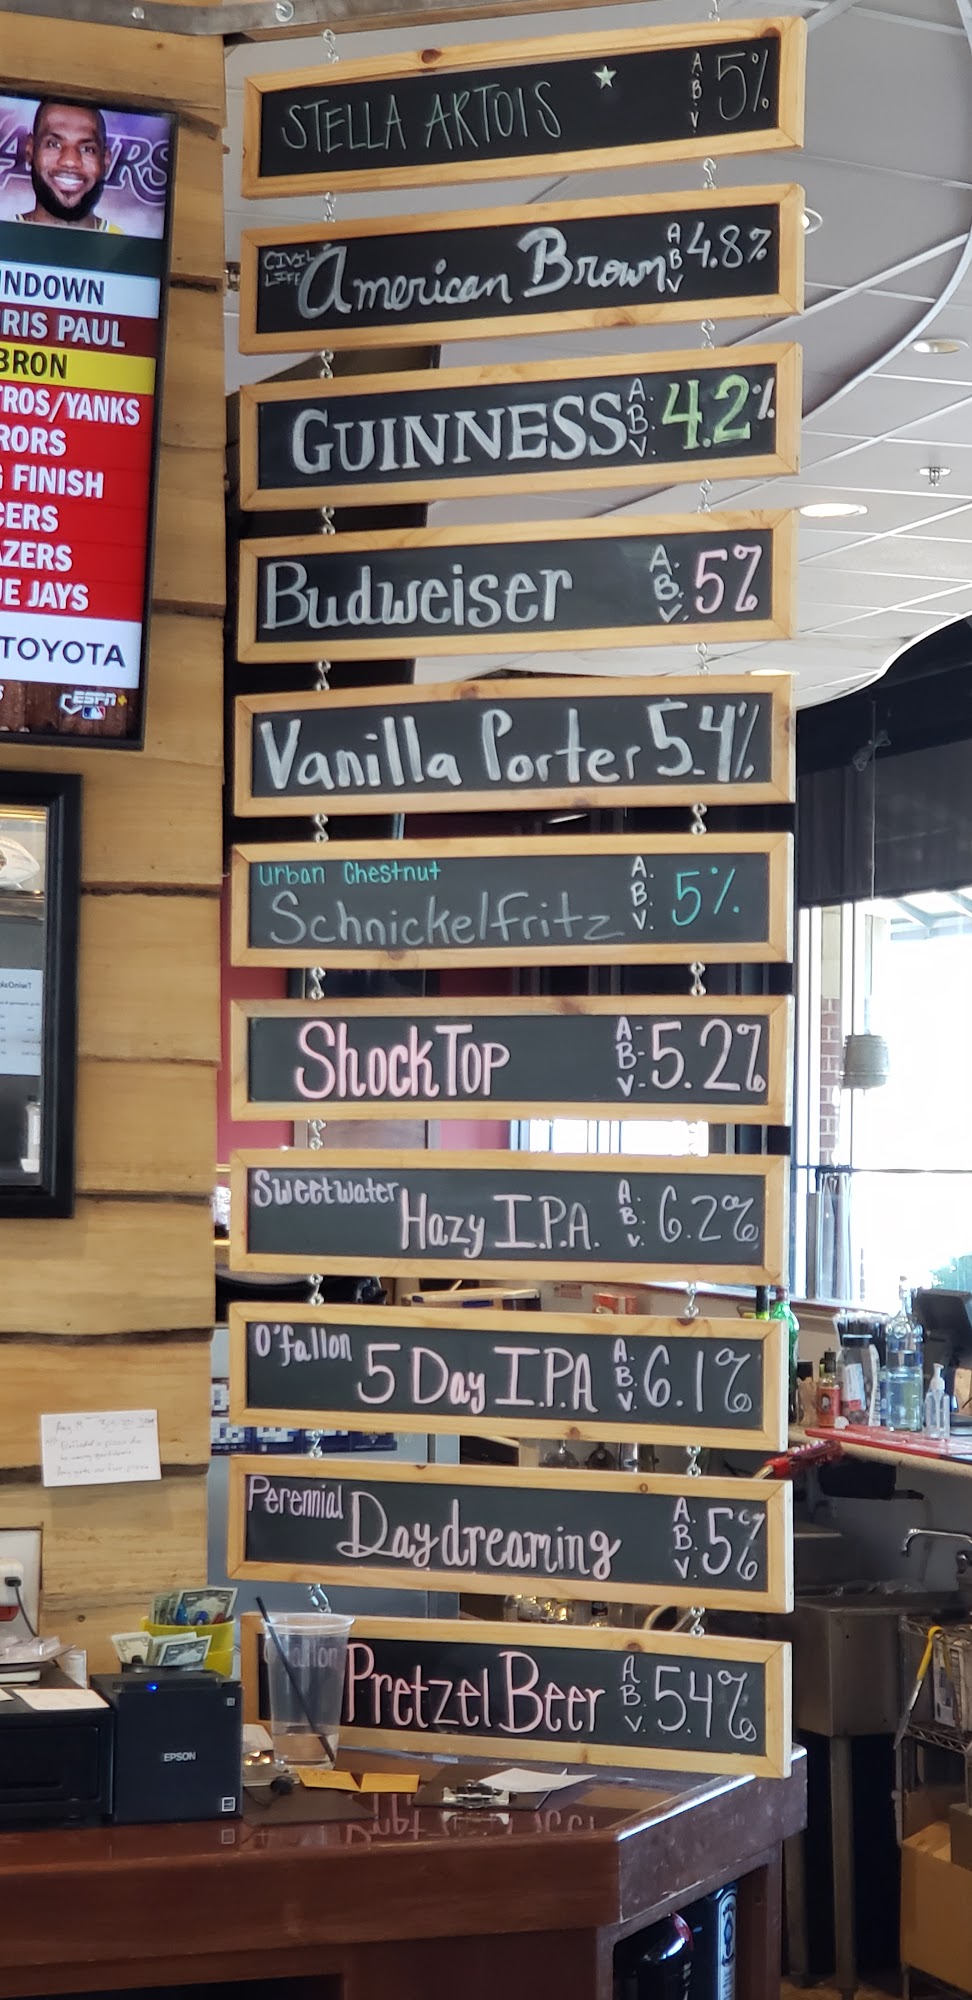 STELLA ARTOIS ABV 5%
CIVIL LIFE American Brown ABV 4.8%
GUINNESS A.B.V. 4.2%
Budweiser A.B.V. 5%
Vanilla Porter 5.4%
Urban Chestnut
Schnickelfritz A.B.V. 5%
SHOCKTOP A-B-V- 5.2%
Sweetwater
Hazy I.P.A. A.B.V. 6.2%
O'fallon
5 Day I.P.A A.B.V. 6.1%
Perennial
Daydreaming A.B.V. 5%
Pretzel Beer A.B.V. 5.4%
NDOWN
RIS PAUL
BRON
TROS/YANKS
RORS
FINISH
CERS
AZERS
E JAYS
TOYOTA
ESPN+
EPSON